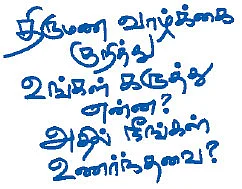 திருமண வாழ்க்கை
குறித்து
உங்கள் கருத்து
என்ன?
அதில் நீங்கள்
உணர்ந்தவை?